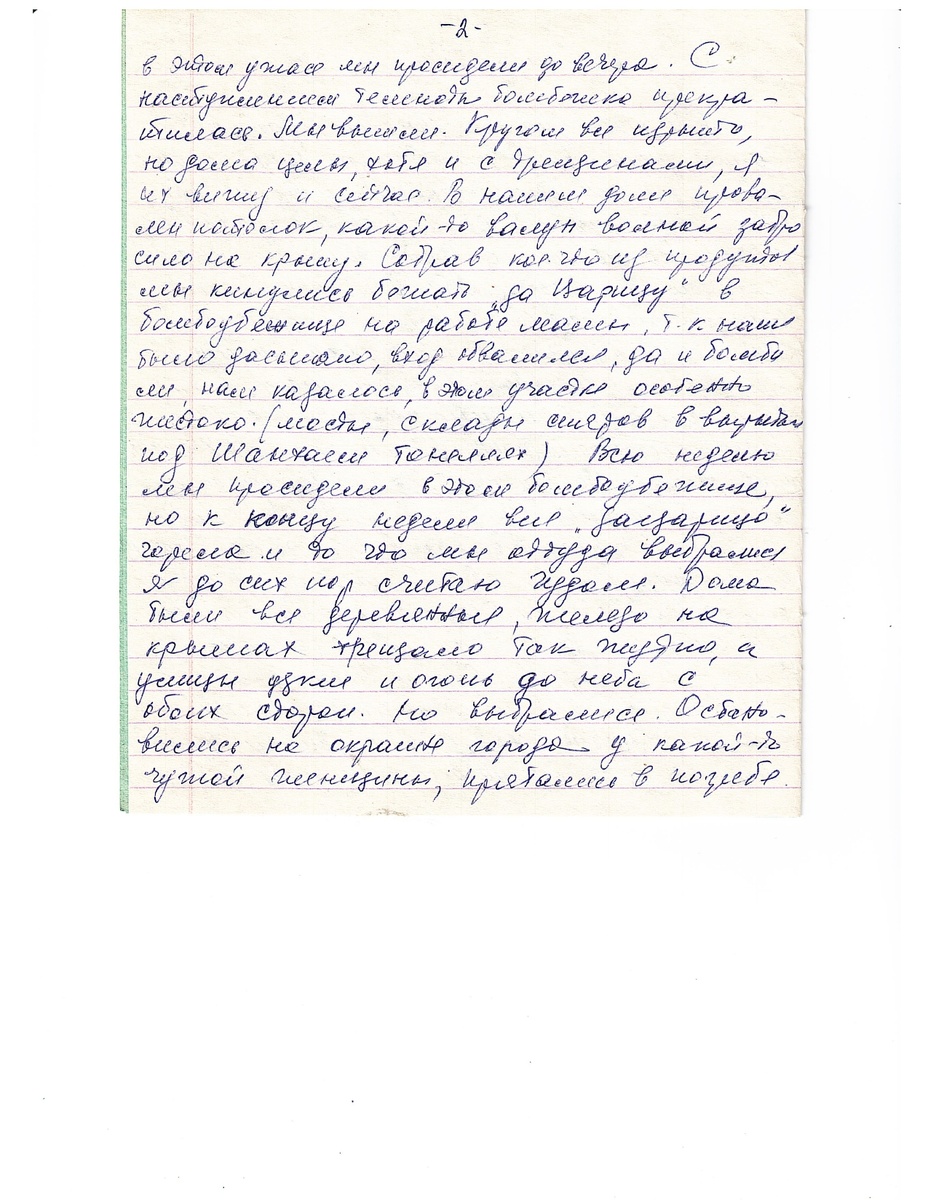 -2-
в этом ужасе мы просидели до вечера. С
наступлением темноты бомбежка прекра-
тилась. Мы вышли. Кругом все изрыто,
но дома целы, хотя и с трещинами, я
их вижу и сейчас. В нашем доме прова-
лен потолок, какой-то валун волной забро
сило на крышу. Собрав кое-что из продуктов
мы кинулись бежать "за Царицу" в
бомбоубежище на работе мамы, т.к наше
было засыпано, вход обвалился, да и бомби
ли, нам казалось, в этом участке особенно
жестоко. (мосты, склады снарядов в вырытых
под Шанхаем тоннелях) Всю неделю
мы просидели в этом бомбоубежище,
но к концу недели вся "зацарица"
горела и то что мы оттуда выбрались
я до сих пор считаю чудом. Дома
были все деревянные, железо на
крышах трещало так жутко, а
улицы узкие и огонь до неба с
обоих сторон. Но выбрались. Остано-
вились на окраине города у какой-то
чужой женщины, прятались в погребе.